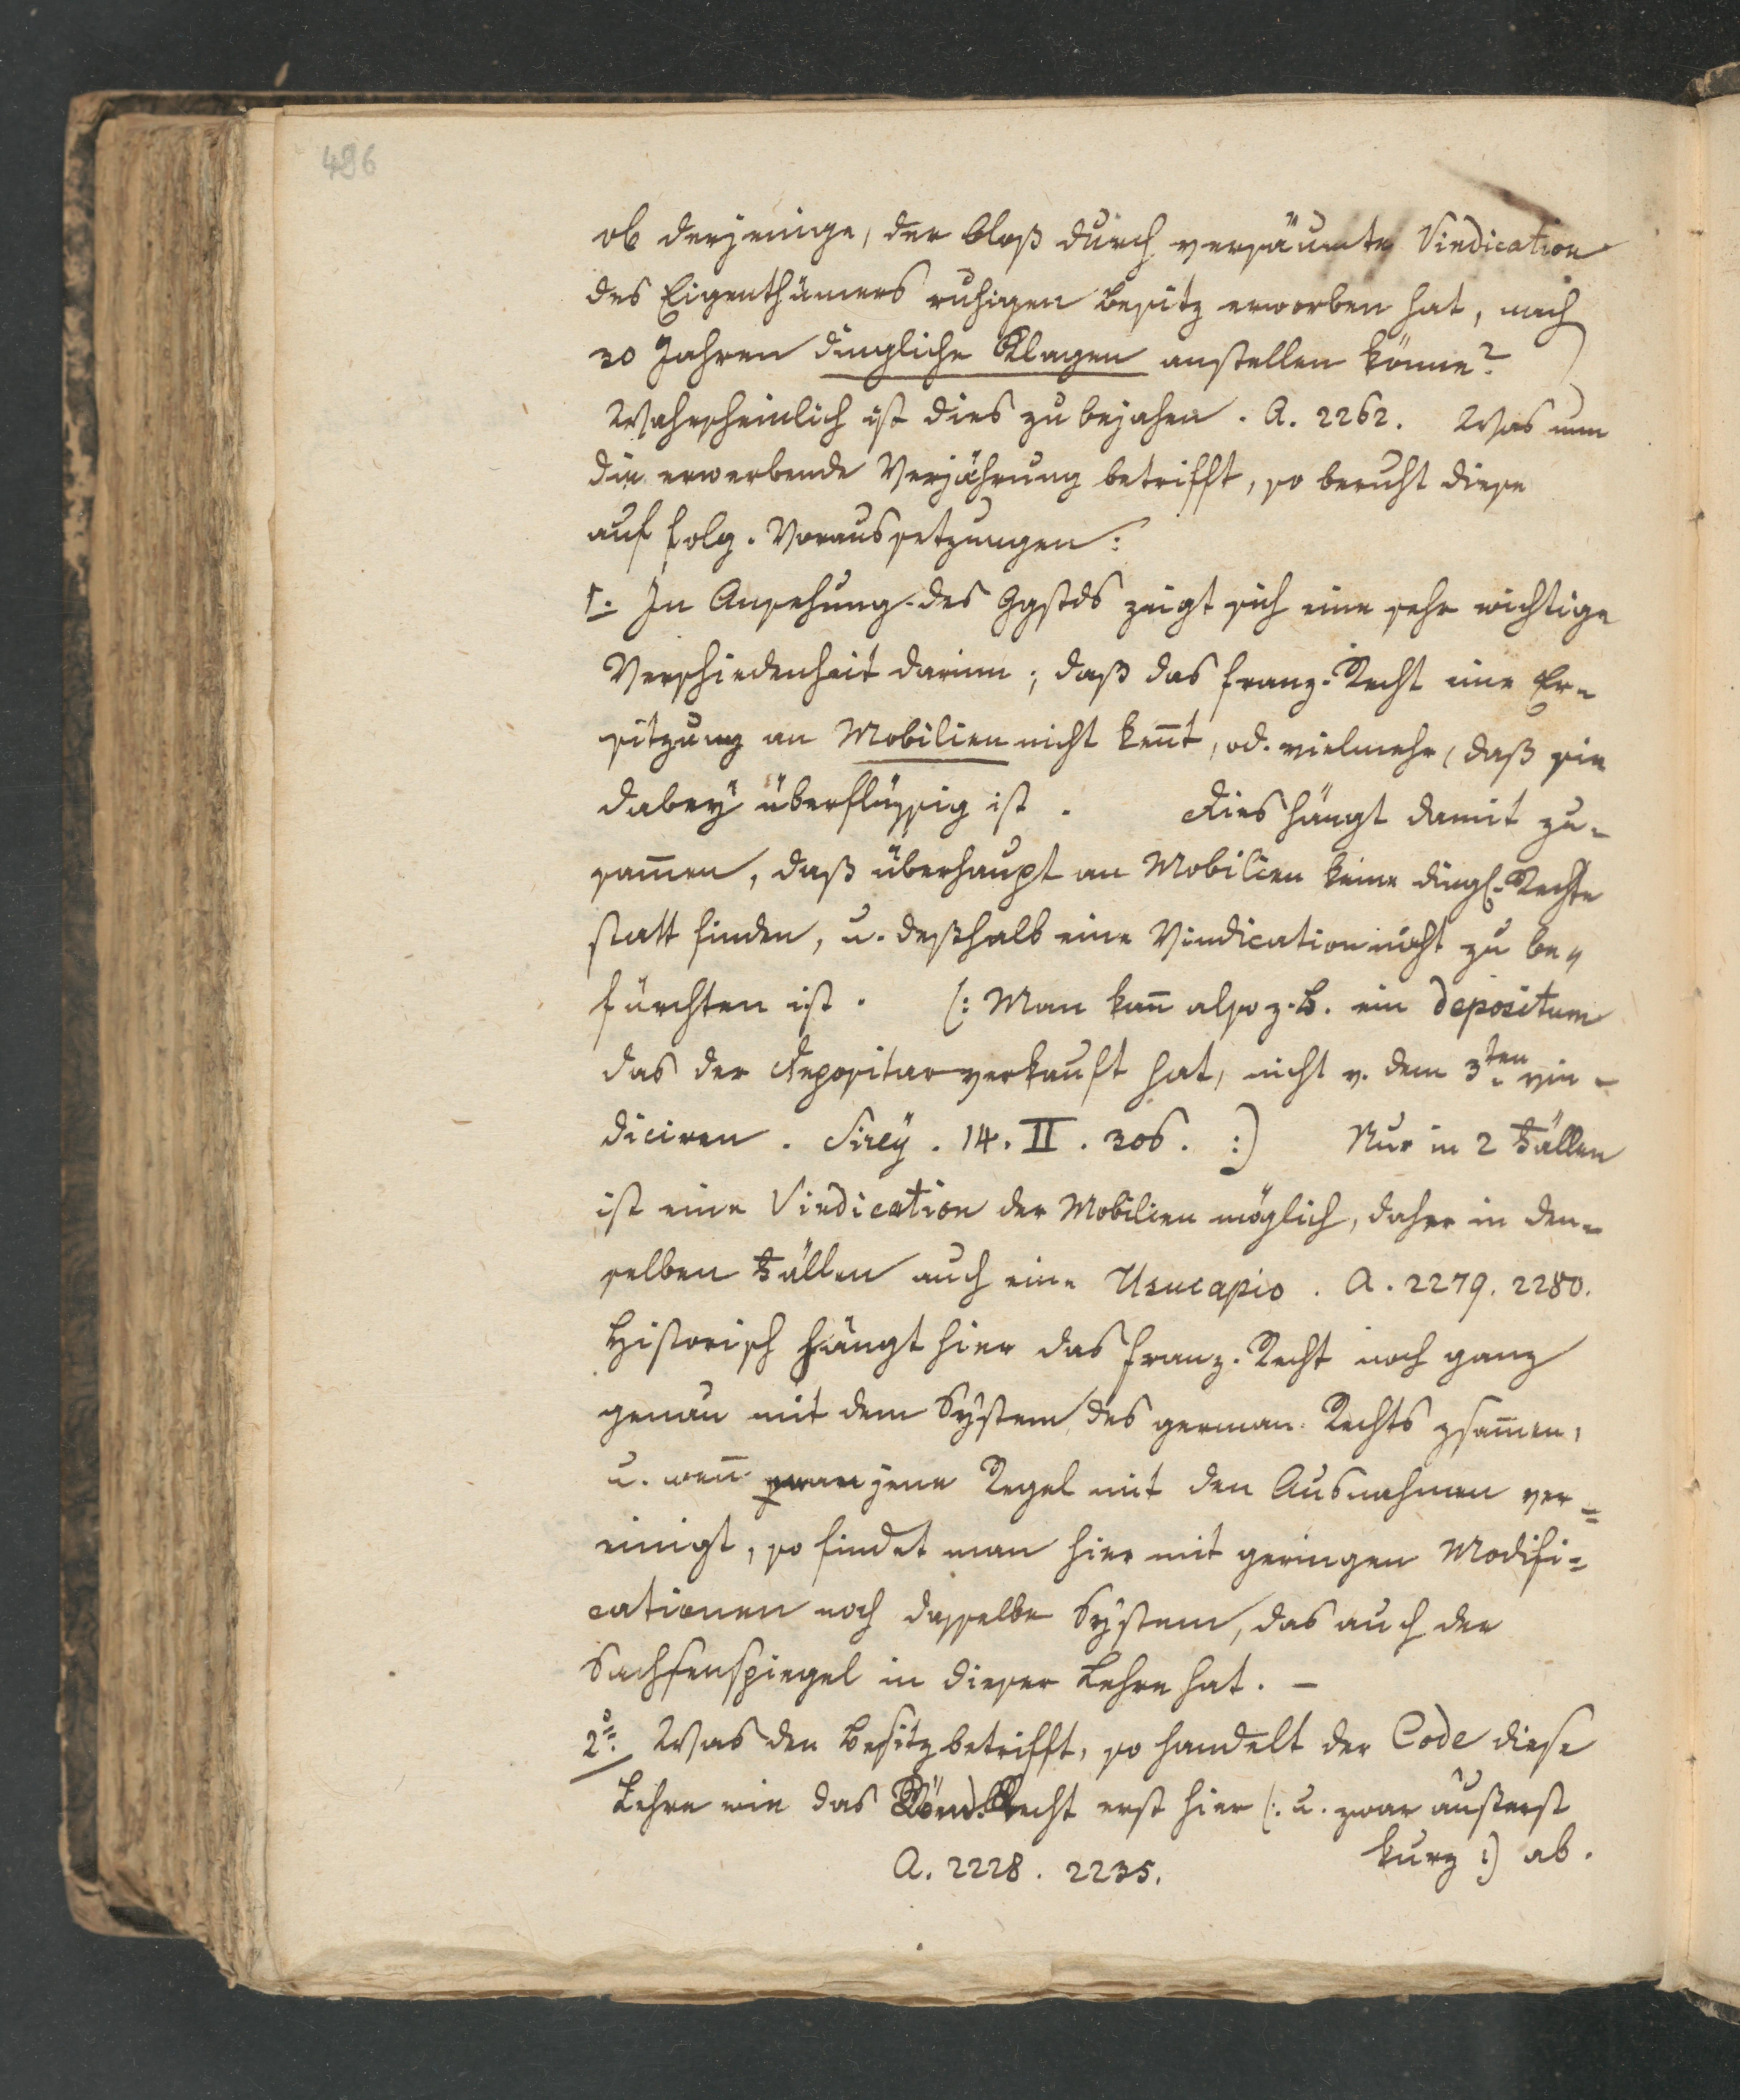 496
ob derjenige, der bloß durch versäumte Vindication
des Eigenthümers ruhigen Besitz erworben hat, nach
30 Jahren dingliche Klagen anstellen könne?
Wahrscheinlich ist dies zu bejahen. A. 2262. Was nun
die erwerbende Verjährung betrifft, so beruht diese
auf folg. Voraussetzungen:
1. In Ansehung des Ggstds zeigt sich eine sehr wichtige
Verschiedenheit darinn, daß das franz. Recht eine Er-
sitzung an Mobilien nicht keñt, od. vielmehr, daß sie
dabey überflüssig ist. Dies hängt damit zu-
sam̄en, daß überhaupt an Mobilien keine dingl. Rechte
statt finden, u. deßhalb eine Vindication nicht zu be-
fürchten ist. (: Man kañ also z. B. ein depositum
das der Depositar verkauft hat, nicht v. dem 3ten vin-
diciren. Sirey. 14. II. 306. :) Nur in 2 Fällen
ist eine Vindication der Mobilien möglich, daher in den-
selben Fällen auch eine Usucapio. A. 2279. 2280.
Historisch hängt hier das franz. Recht noch ganz
genau mit dem System des german. Rechts zsam̄en,
u. weñ man jene Regel mit den Ausnahmen ver=
einigt, so findet man hier mit geringen Modifi=
cationen noch dasselbe System, das auch der
Sachsenspiegel in dieser Lehre hat. —
2o. Was den Besitz betrifft, so handelt der Code diese
Lehre wie das Röm. Recht erst hier (: u. zwar äußerst
kurz :) ab.
A. 2228. 2235.